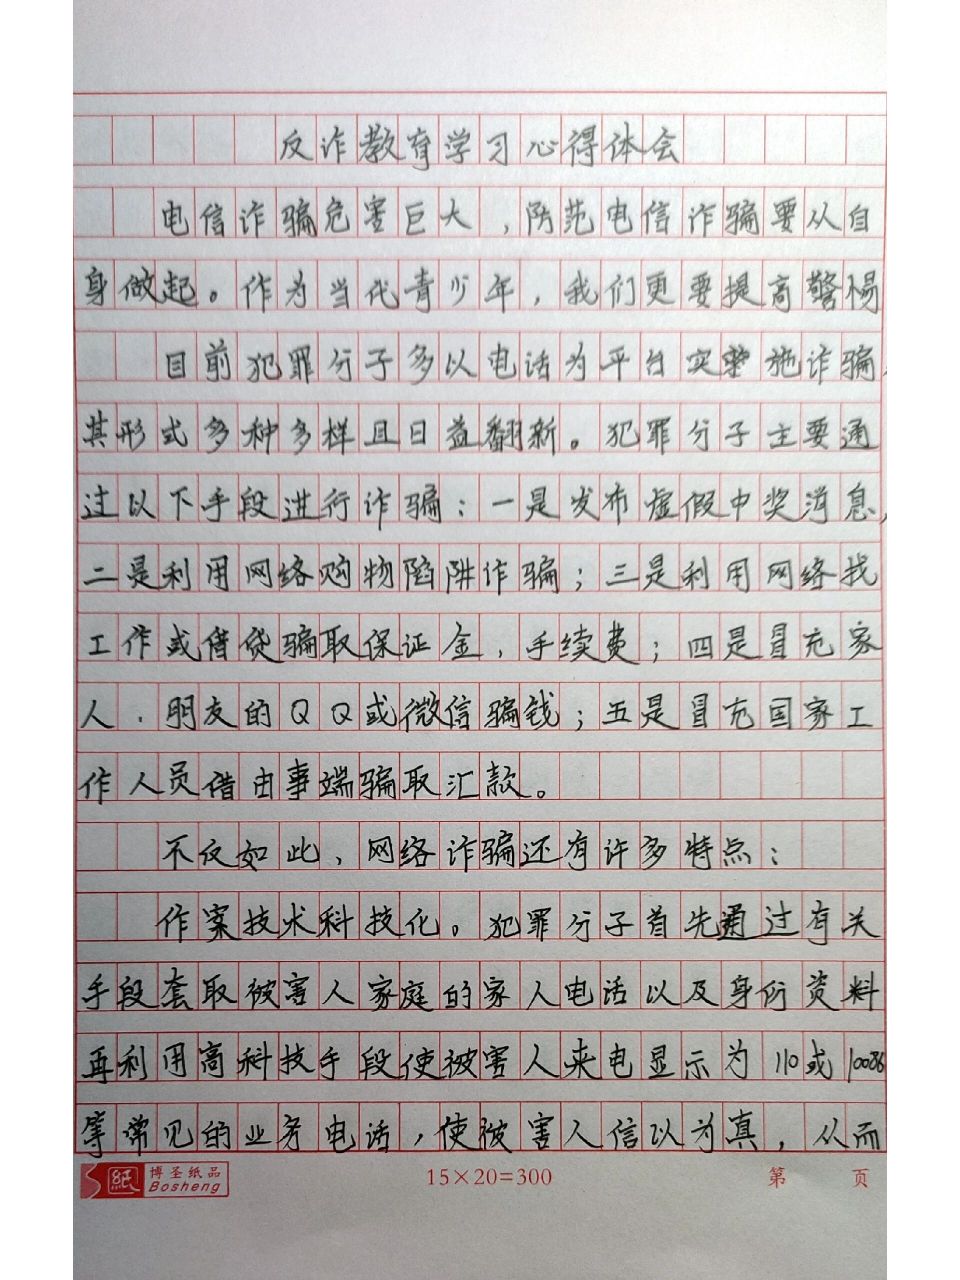 反诈教育学习心得体会
电信诈骗危害巨大，防范电信诈骗要从自
身做起。作为当代青少年，我们更要提高警惕
目前犯罪分子多以电话为平台实施诈骗，
其形式多种多样且日益翻新。犯罪分子主要通
过以下手段进行诈骗：一是发布虚假中奖消息，
二是利用网络购物陷阱诈骗；三是利用网络找
工作或借贷骗取保证金、手续费；四是冒充家
人、朋友的QQ或微信骗钱；五是冒充国家工
作人员借由事端骗取汇款。
不仅如此、网络诈骗还有许多特点：
作案技术科技化。犯罪分子首先通过有关
手段套取被害人家庭的家人电话以及身份资料
再利用高科技手段使被害人来电显示为110或10086
等常见的业务电话，使被害人信以为真，从而
纸 博圣纸品 15×20=300 第 页
Bosheng